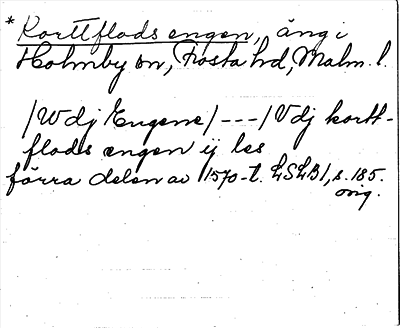 * Korttflods engen, äng i
Holmby sn, Frosta hd, Malm. l.
/Wdj Engene/ --- /Vdj kortt-
flods engen ij les
förra delen av 1570-t. LSLB1, s. 185.
orig.